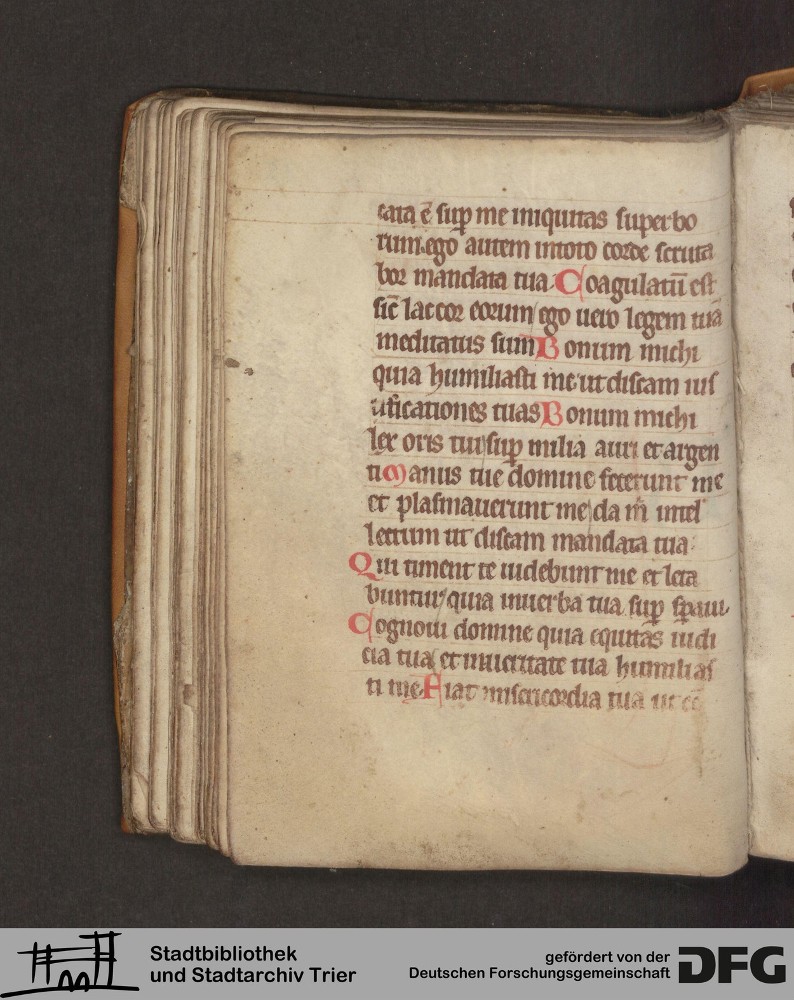 cata ē suꝑ me iniquitas superbo
rum.ego autem intoto corde scruta
bor mandata tua Coagulatū est
sic̄ lac cor eorum/ego uero legem tuā
meditatus sum Bonum michi
quia humiliasti me ut discam ius
tificationes tuas Bonum michi
lex oris tui/suꝑ milia auri et argen
ti Manus tue domine fecerunt me
et plasmauerunt me/da m̄ intel
lectum ut discam mandata tua:
Qui timent te uidebunt me et leta
buntur/quia inuerba tua suꝑ sꝑaui.
Cognoui domine quia equitas iudi
cia tua/et inueritate tua humilias
ti me. Fiat misericordia tua ut
Stadtbibliothek
und Stadtarchiv Trier
gefördert von der
Deutschen Forschungsgemeinschaft
DFG